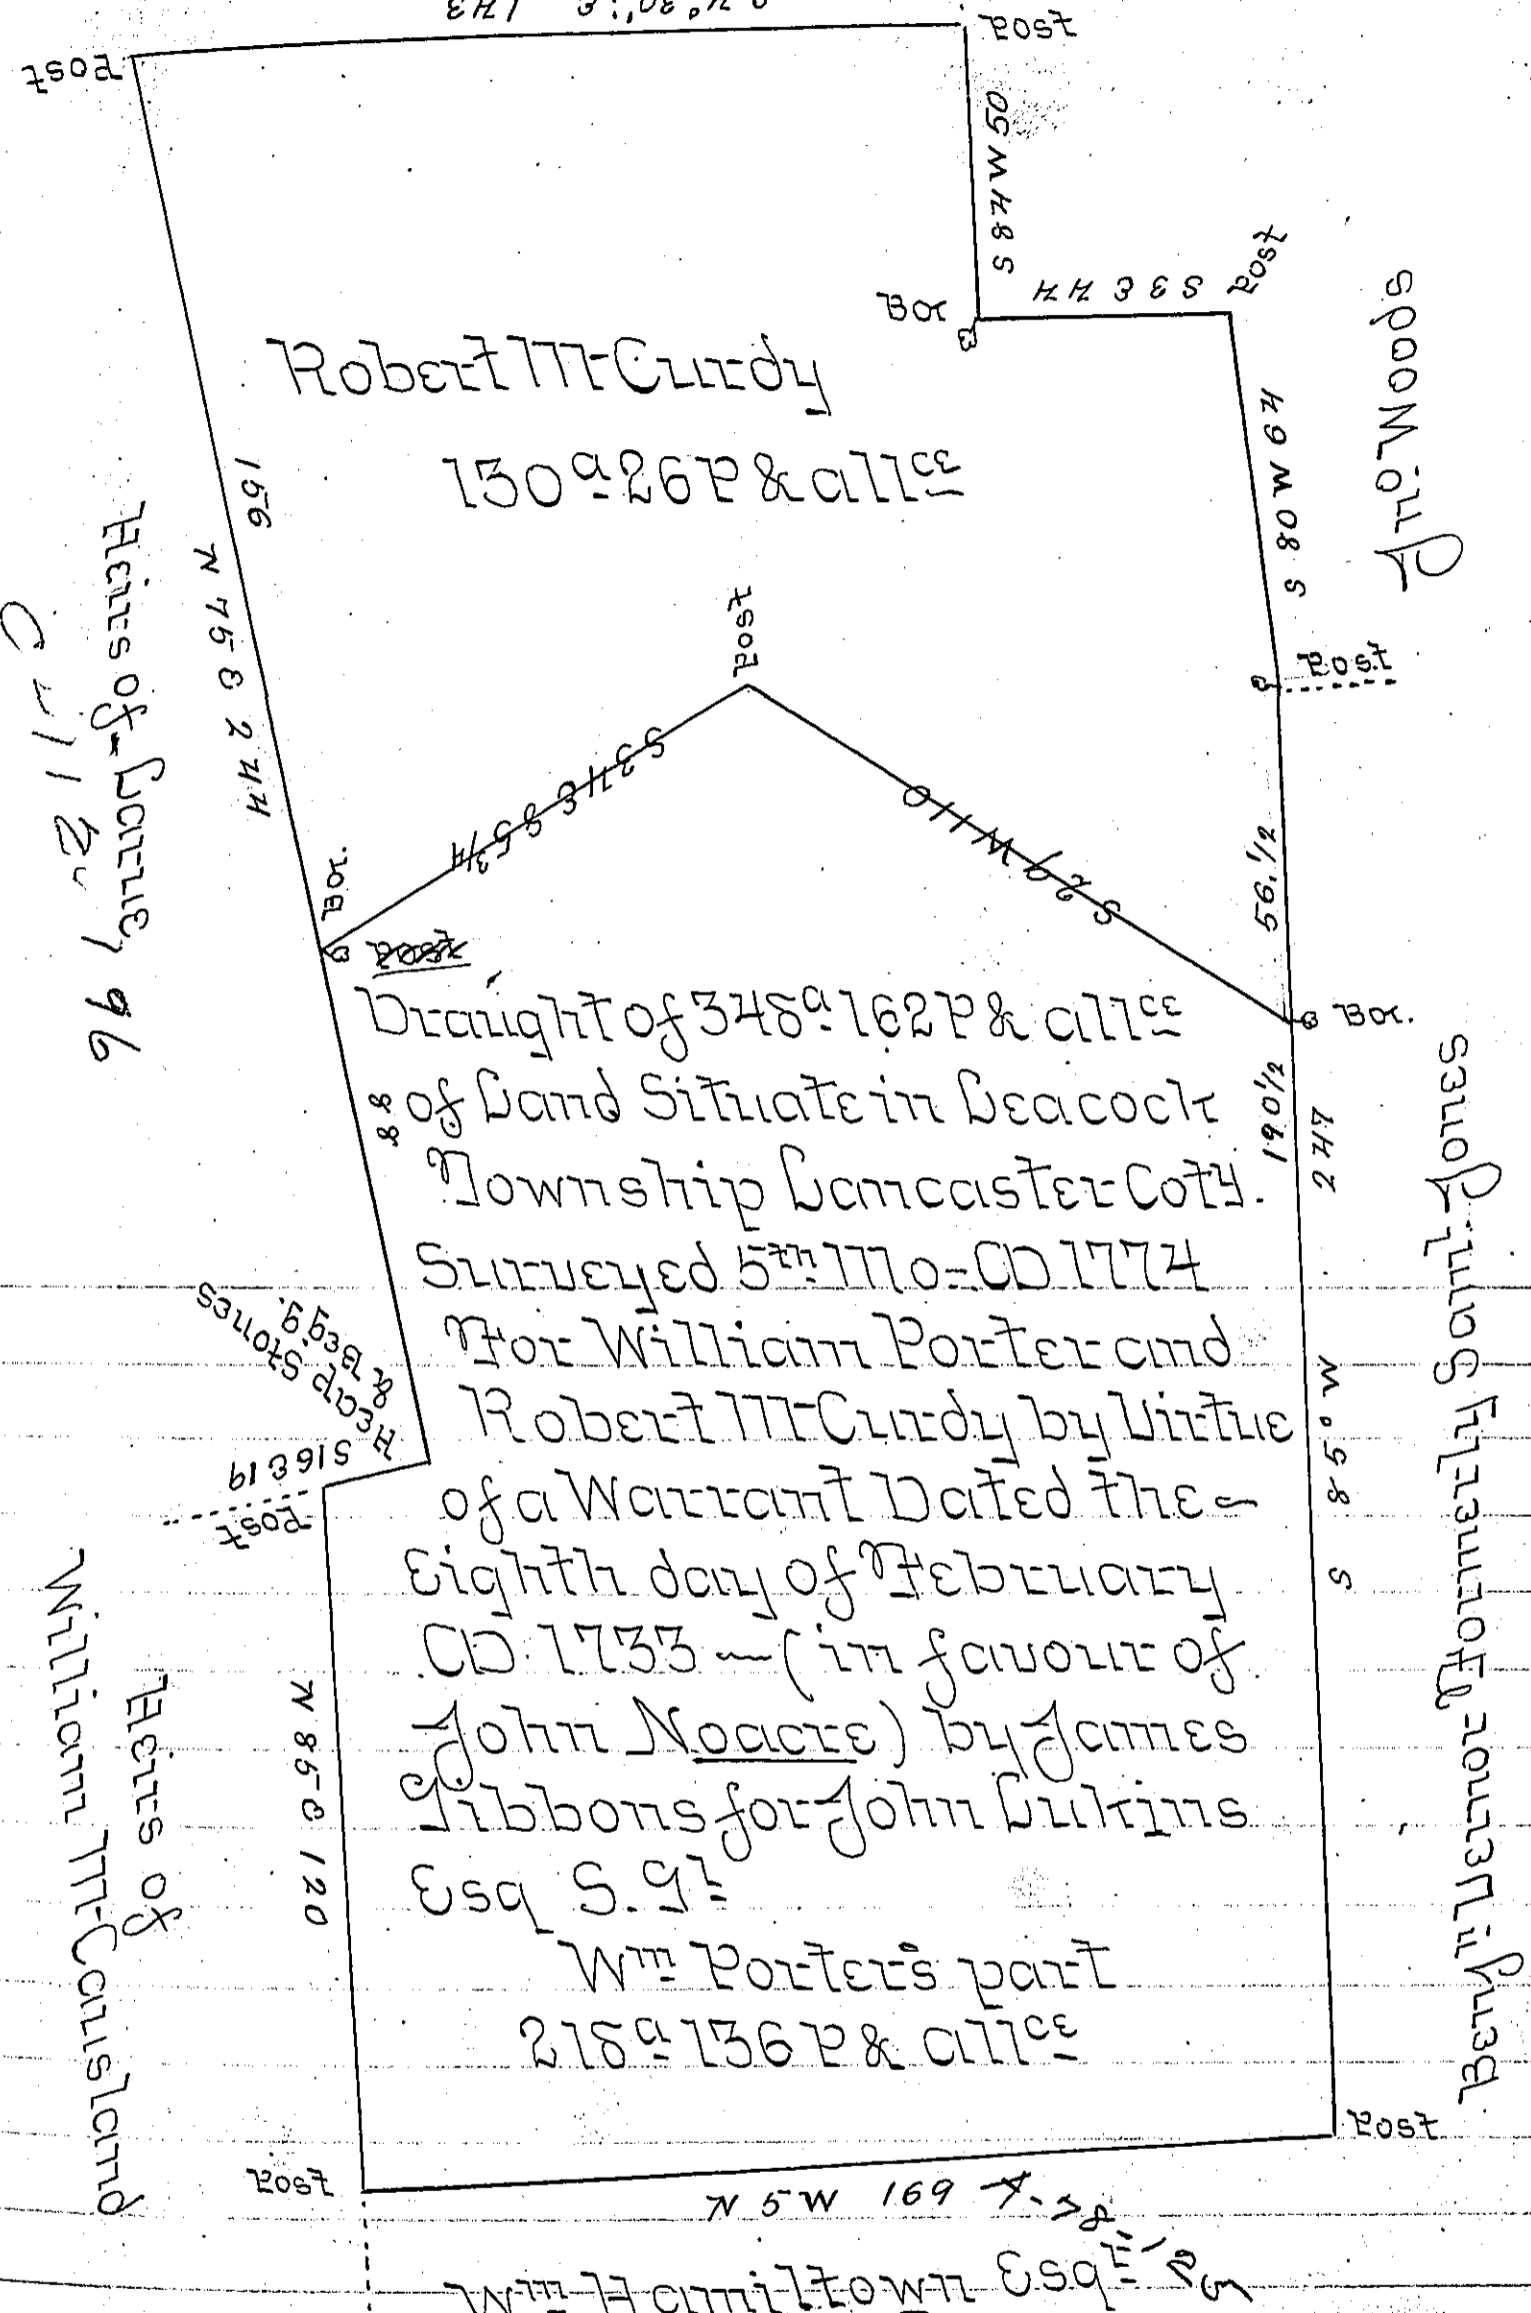 4° 30' E 143
Post
Post
S 84 W 50
BO
S 3 E 44
Post
Jno. Woods
Robert McCurdy
130 a 26 P & allce
S 80 W 64
156
N 75 E 244
Heirs of
96
Post
Post
S 34 E 85 3/4
S 29 W 110
56. 1/2
BO.
Post
BO.
Draught of 348 a 162 P & allce
of Land Situate in Leacock
Township Lancaster Coty.
Surveyed 5th Mo = AD 1774
For William Porter and
Robert McCurdy by Virtue
of a Warrant Dated the
Eighth day of February
AD 1733 — (in favour of
John Noacre) by James
Gibbons for John Lukins
Esq S. Gl
Wm Porter's part
218 a 136 P & allce
88
190 1/2
247
S 85° W
Heap Stones
& Beg g.
S 16 E 19
Post
N 85 E 120
Heirs of
William McCausland
Benja. Vernor Formerly Saml. Jones
Post
Post
N 5 W 169
Wm Hamiltown Esqr